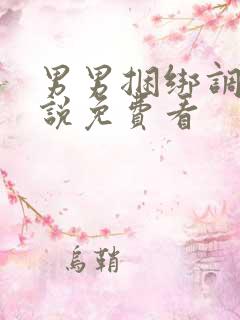 男男捆绑調
說免費看
烏鞘